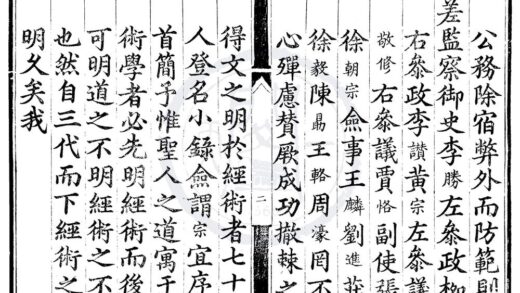 公務除宿弊外而防範
差監察御史李勝左叅政
右叅政李讃黃宗左叅議
敬修右叅議賈恪副使張
徐朝宗僉事王麟劉進莊
徐毅陳勗王輅周濠罔不
心殫慮賛厥成功撤棘之
二
得文之明於經術者七十
人登名小錄僉謂宗宜序
首簡予惟聖人之道寓于
術學者必先明經術而後
可明道之不明經術之不
也然自三代而下經術之
明久矣我